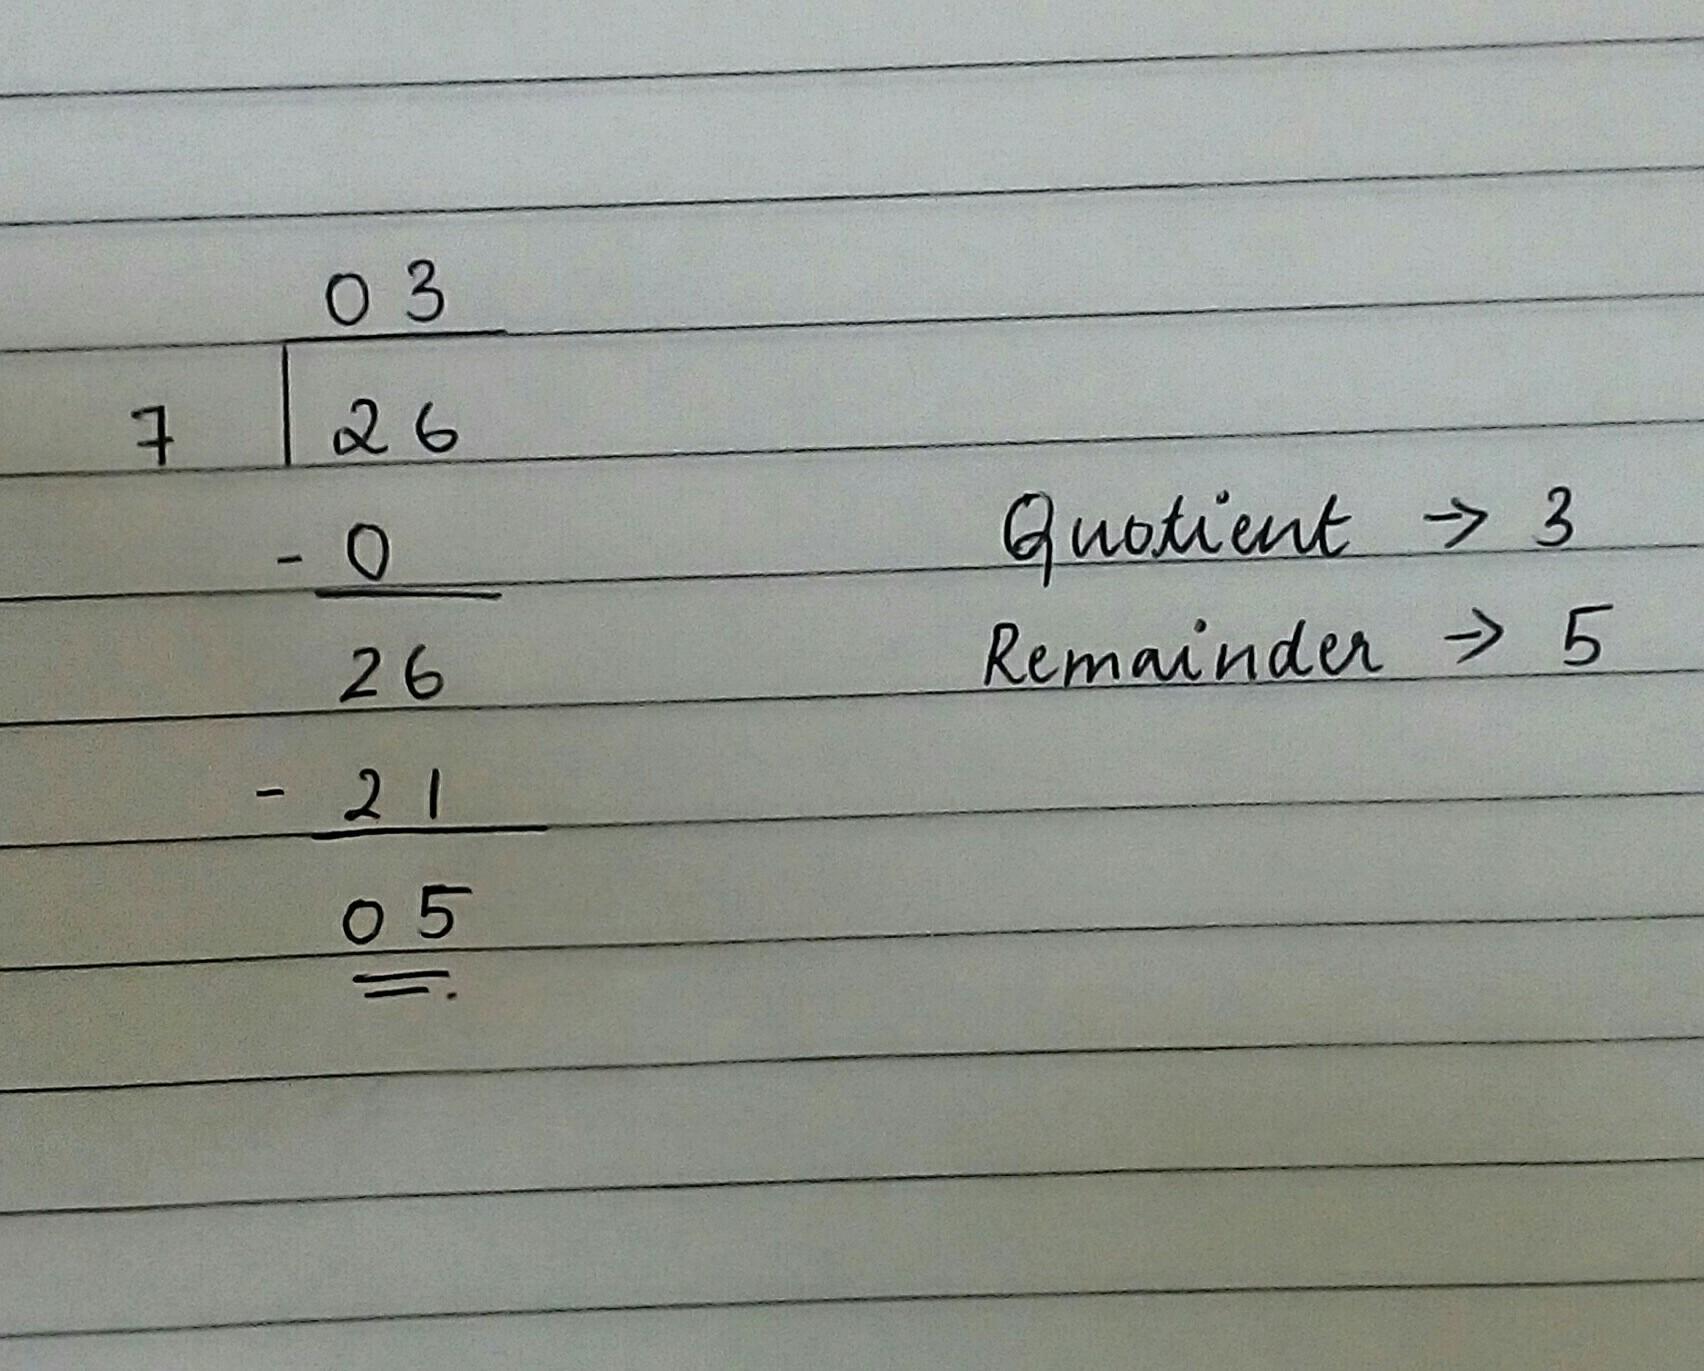 03
7 26
- 0
26
- 21
05
Quotient → 3
Remainder → 5